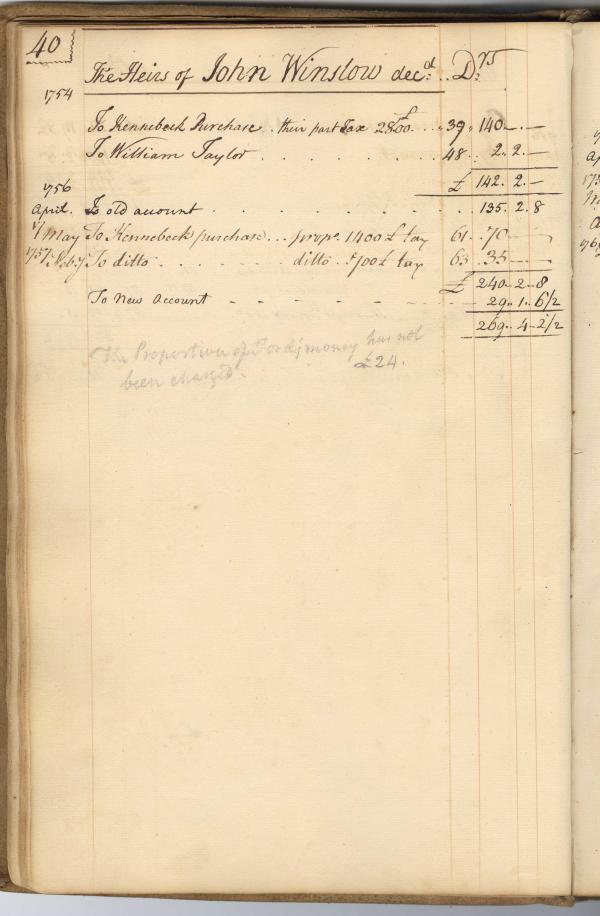 40
The Heirs of John Winslow decd: .. Drs
1754
To Kennebeck Purchase .. their part Tax 2800£ .. 39 .. 140 .. — .. —
To William Taylor . . . . . . . 48 .. 2 .. 2 .. —
£ 142 .. 2 .. —
1756
April. To old account . . . . . . . . . 135 .. 2 .. 8
May To Kennebeck purchase ... propn. 1400£ tax 61 .. 70 .. — .. —
1757 To ditto . . . . . . ditto .. 700£ tax 63 .. 35 .. — .. —
£ 240 .. 2 .. 8
To New Account - - - - - - - 29 .. 1 .. 6 1/2
269 .. 4 .. 2 1/2
The Proportion of money has not
been charged. £24.